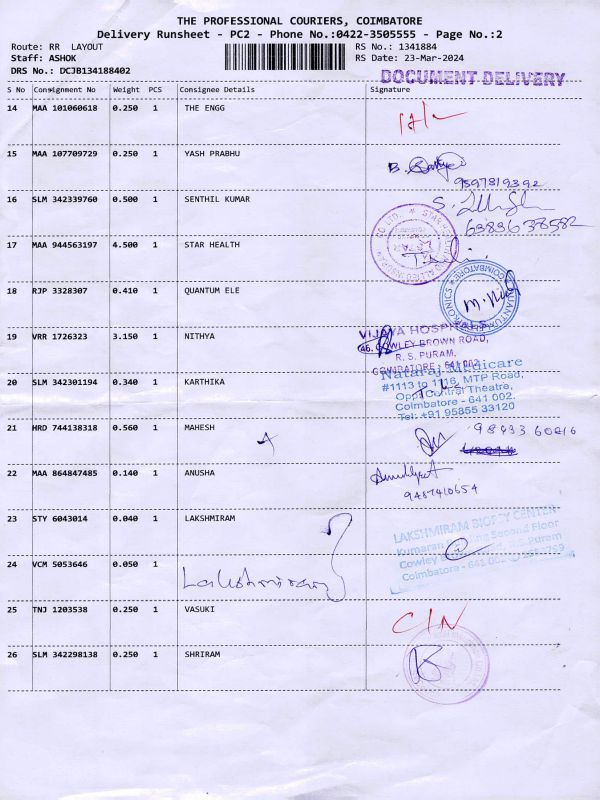 THE PROFESSIONAL COURIERS, COIMBATORE
Delivery Runsheet - PC2 - Phone No.:0422-3505555 - Page No.:2
Route: RR LAYOUT
Staff: ASHOK
DRS No.: DCJB134188402
RS No.: 1341884
RS Date: 23-Mar-2024
DOCUMENT DELIVERY
S No Consignment No Weight PCS Consignee Details Signature
14 MAA 101060618 0.250 1 THE ENGG
15 MAA 107709729 0.250 1 YASH PRABHU
9597819392
16 SLM 342339760 0.500 1 SENTHIL KUMAR
6383638582
17 MAA 944563197 4.500 1 STAR HEALTH
18 RJP 3328307 0.410 1 QUANTUM ELE
COIMBATORE
19 VRR 1726323 3.150 1 NITHYA
VIJAYA HOSPITALS
46, COWLEY BROWN ROAD,
R. S. PURAM,
COIMBATORE - 641 002
20 SLM 342301194 0.340 1 KARTHIKA
Nataraj Medicare
#1113 to 1116, MTP Road,
Opp. Central Theatre,
Coimbatore - 641 002.
Tel: +91 95855 33120
21 HRD 744138318 0.560 1 MAHESH
98433 60816
22 MAA 864847485 0.140 1 ANUSHA
9487410654
23 STY 6043014 0.040 1 LAKSHMIRAM
LAKSHMIRAM BIOPSY CENTER
Second Floor
Cowley
R.S. Puram
Coimbatore - 641 002
24 VCM 5053646 0.050 1
25 TNJ 1203538 0.250 1 VASUKI
C/N
26 SLM 342298138 0.250 1 SHRIRAM